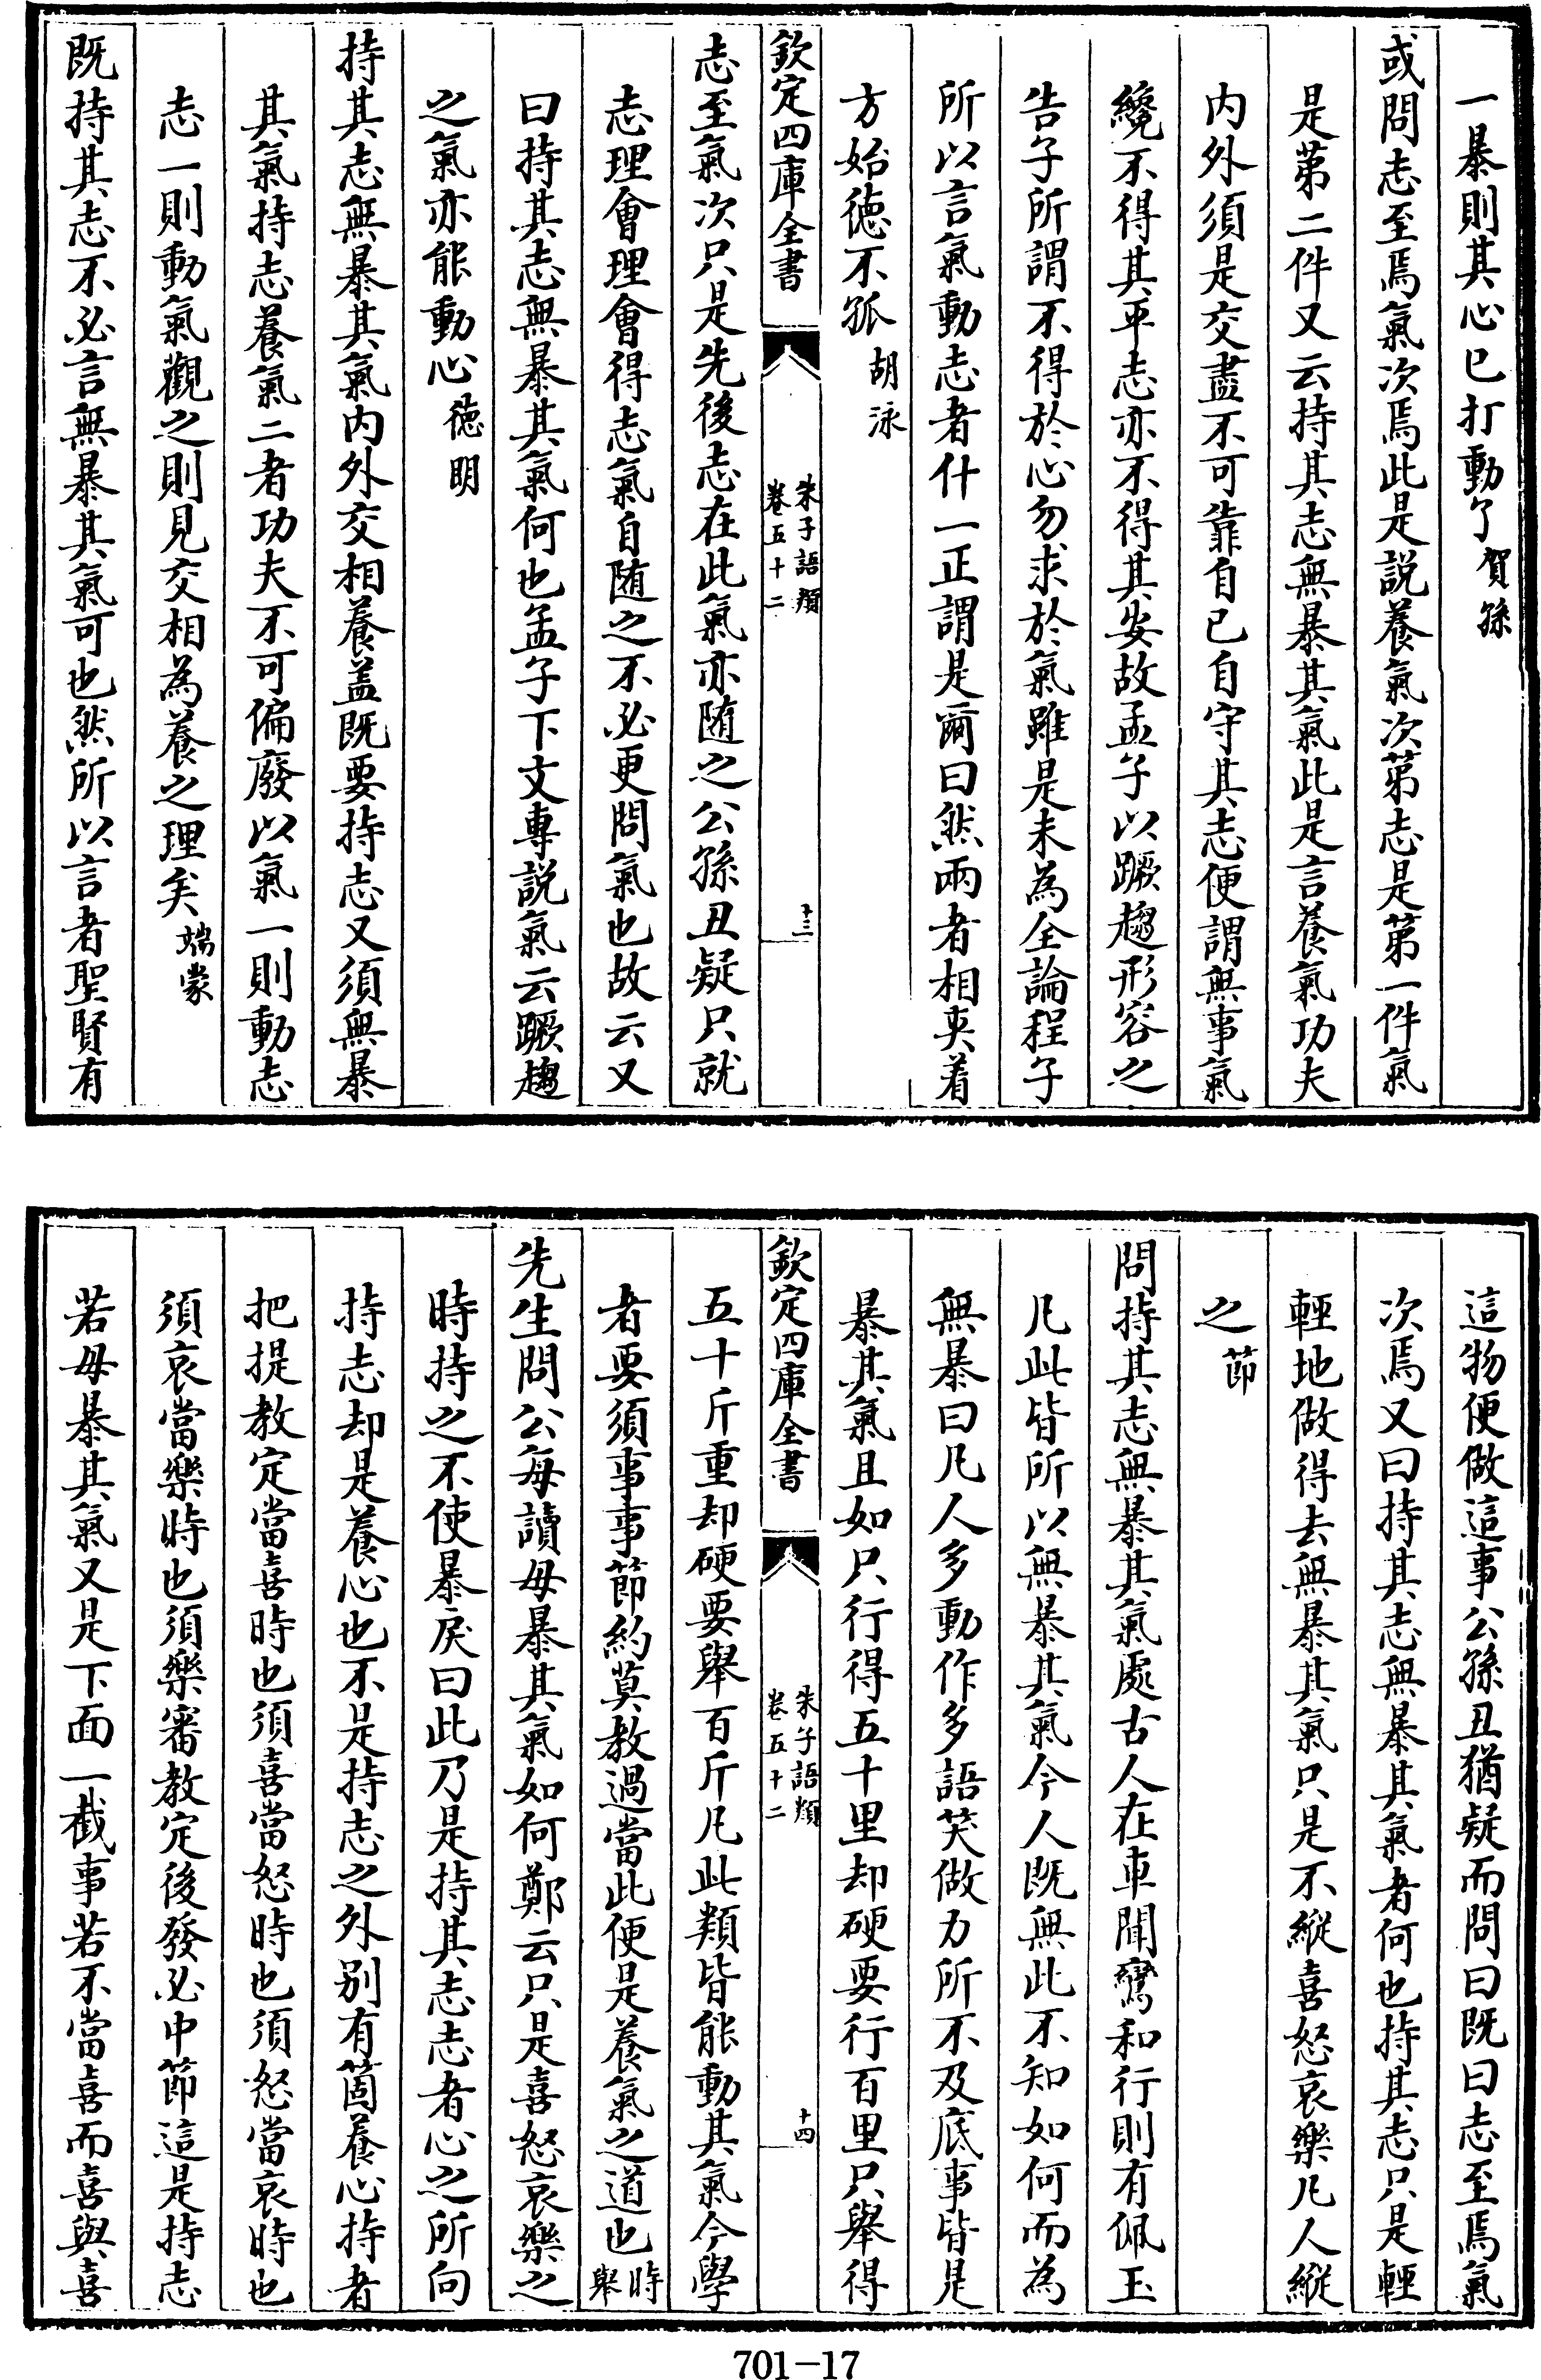 一暴則其心已打動了賀孫
或問志至焉氣次焉此是説養氣次第志是第一件氣
是第二件又云持其志無暴其氣此是言養氣功夫
内外須是交盡不可靠自己自守其志便謂無事氣
纔不得其平志亦不得其安故孟子以蹶趨形容之
告子所謂不得於心勿求於氣雖是未為全論程子
所以言氣動志者什一正謂是爾曰然兩者相夾着
方始徳不孤胡泳
欽定四庫全書
朱子語類
卷五十二
十三
志至氣次只是先後志在此氣亦随之公孫丑疑只就
志理會理會得志氣自随之不必更問氣也故云又
曰持其志無暴其氣何也孟子下文專説氣云蹶趨
之氣亦能動心徳明
持其志無暴其氣内外交相養盖既要持志又須無暴
其氣持志養氣二者功夫不可偏廢以氣一則動志
志一則動氣觀之則見交相為養之理矣端蒙
既持其志不必言無暴其氣可也然所以言者聖賢有
這物便做這事公孫丑猶疑而問曰既曰志至焉氣
次焉又曰持其志無暴其氣者何也持其志只是輕
輕地做得去無暴其氣只是不縱喜怒哀樂凡人縱
之節
問持其志無暴其氣處古人在車聞鸞和行則有佩玉
凡此皆所以無暴其氣今人既無此不知如何而為
無暴曰凡人多動作多語笑做力所不及底事皆是
暴其氣且如只行得五十里却硬要行百里只舉得
欽定四庫全書
朱子語類
卷五十二
十四
五十斤重却硬要舉百斤凡此類皆能動其氣今學
者要須事事節約莫教過當此便是養氣之道也時舉
先生問公每讀毋暴其氣如何鄭云只是喜怒哀樂之
時持之不使暴戾曰此乃是持其志志者心之所向
持志却是養心也不是持志之外别有箇養心持者
把提教定當喜時也須喜當怒時也須怒當哀時也
須哀當樂時也須樂審教定後發必中節這是持志
若毋暴其氣又是下面一截事若不當喜而喜與喜
701-17